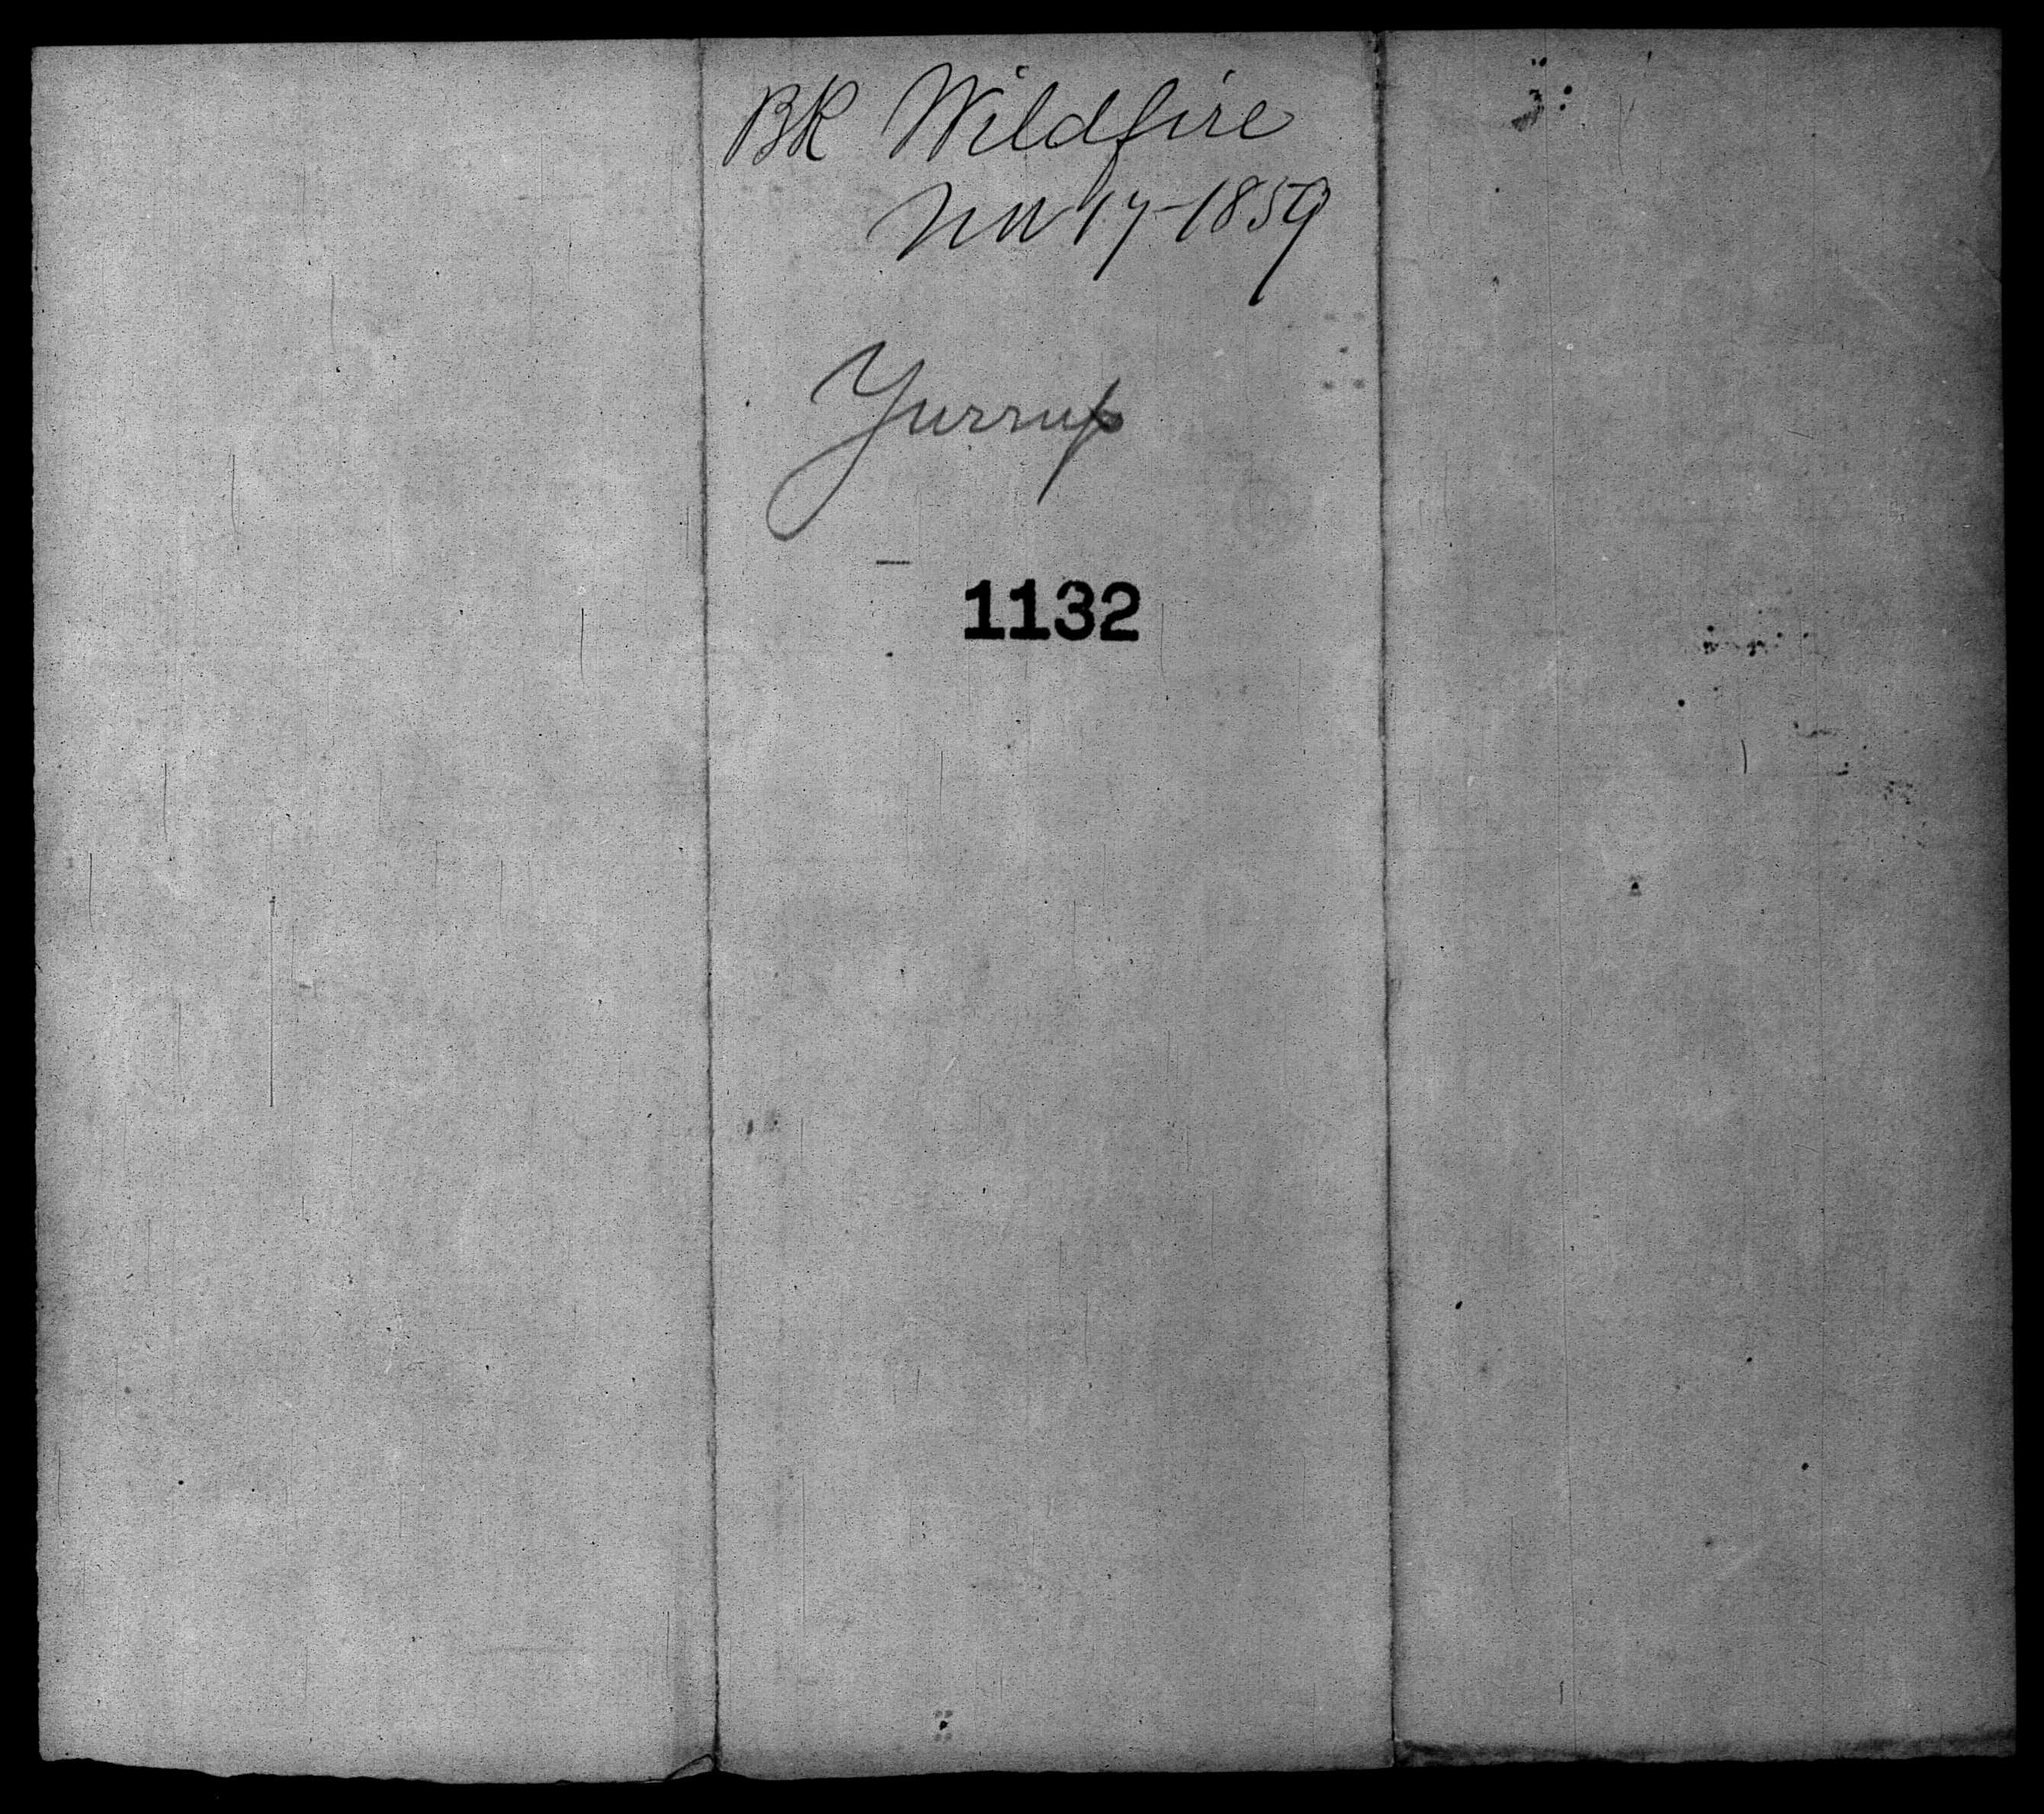 BK Wildfire
Nov 17-1859
Yurrup
1132